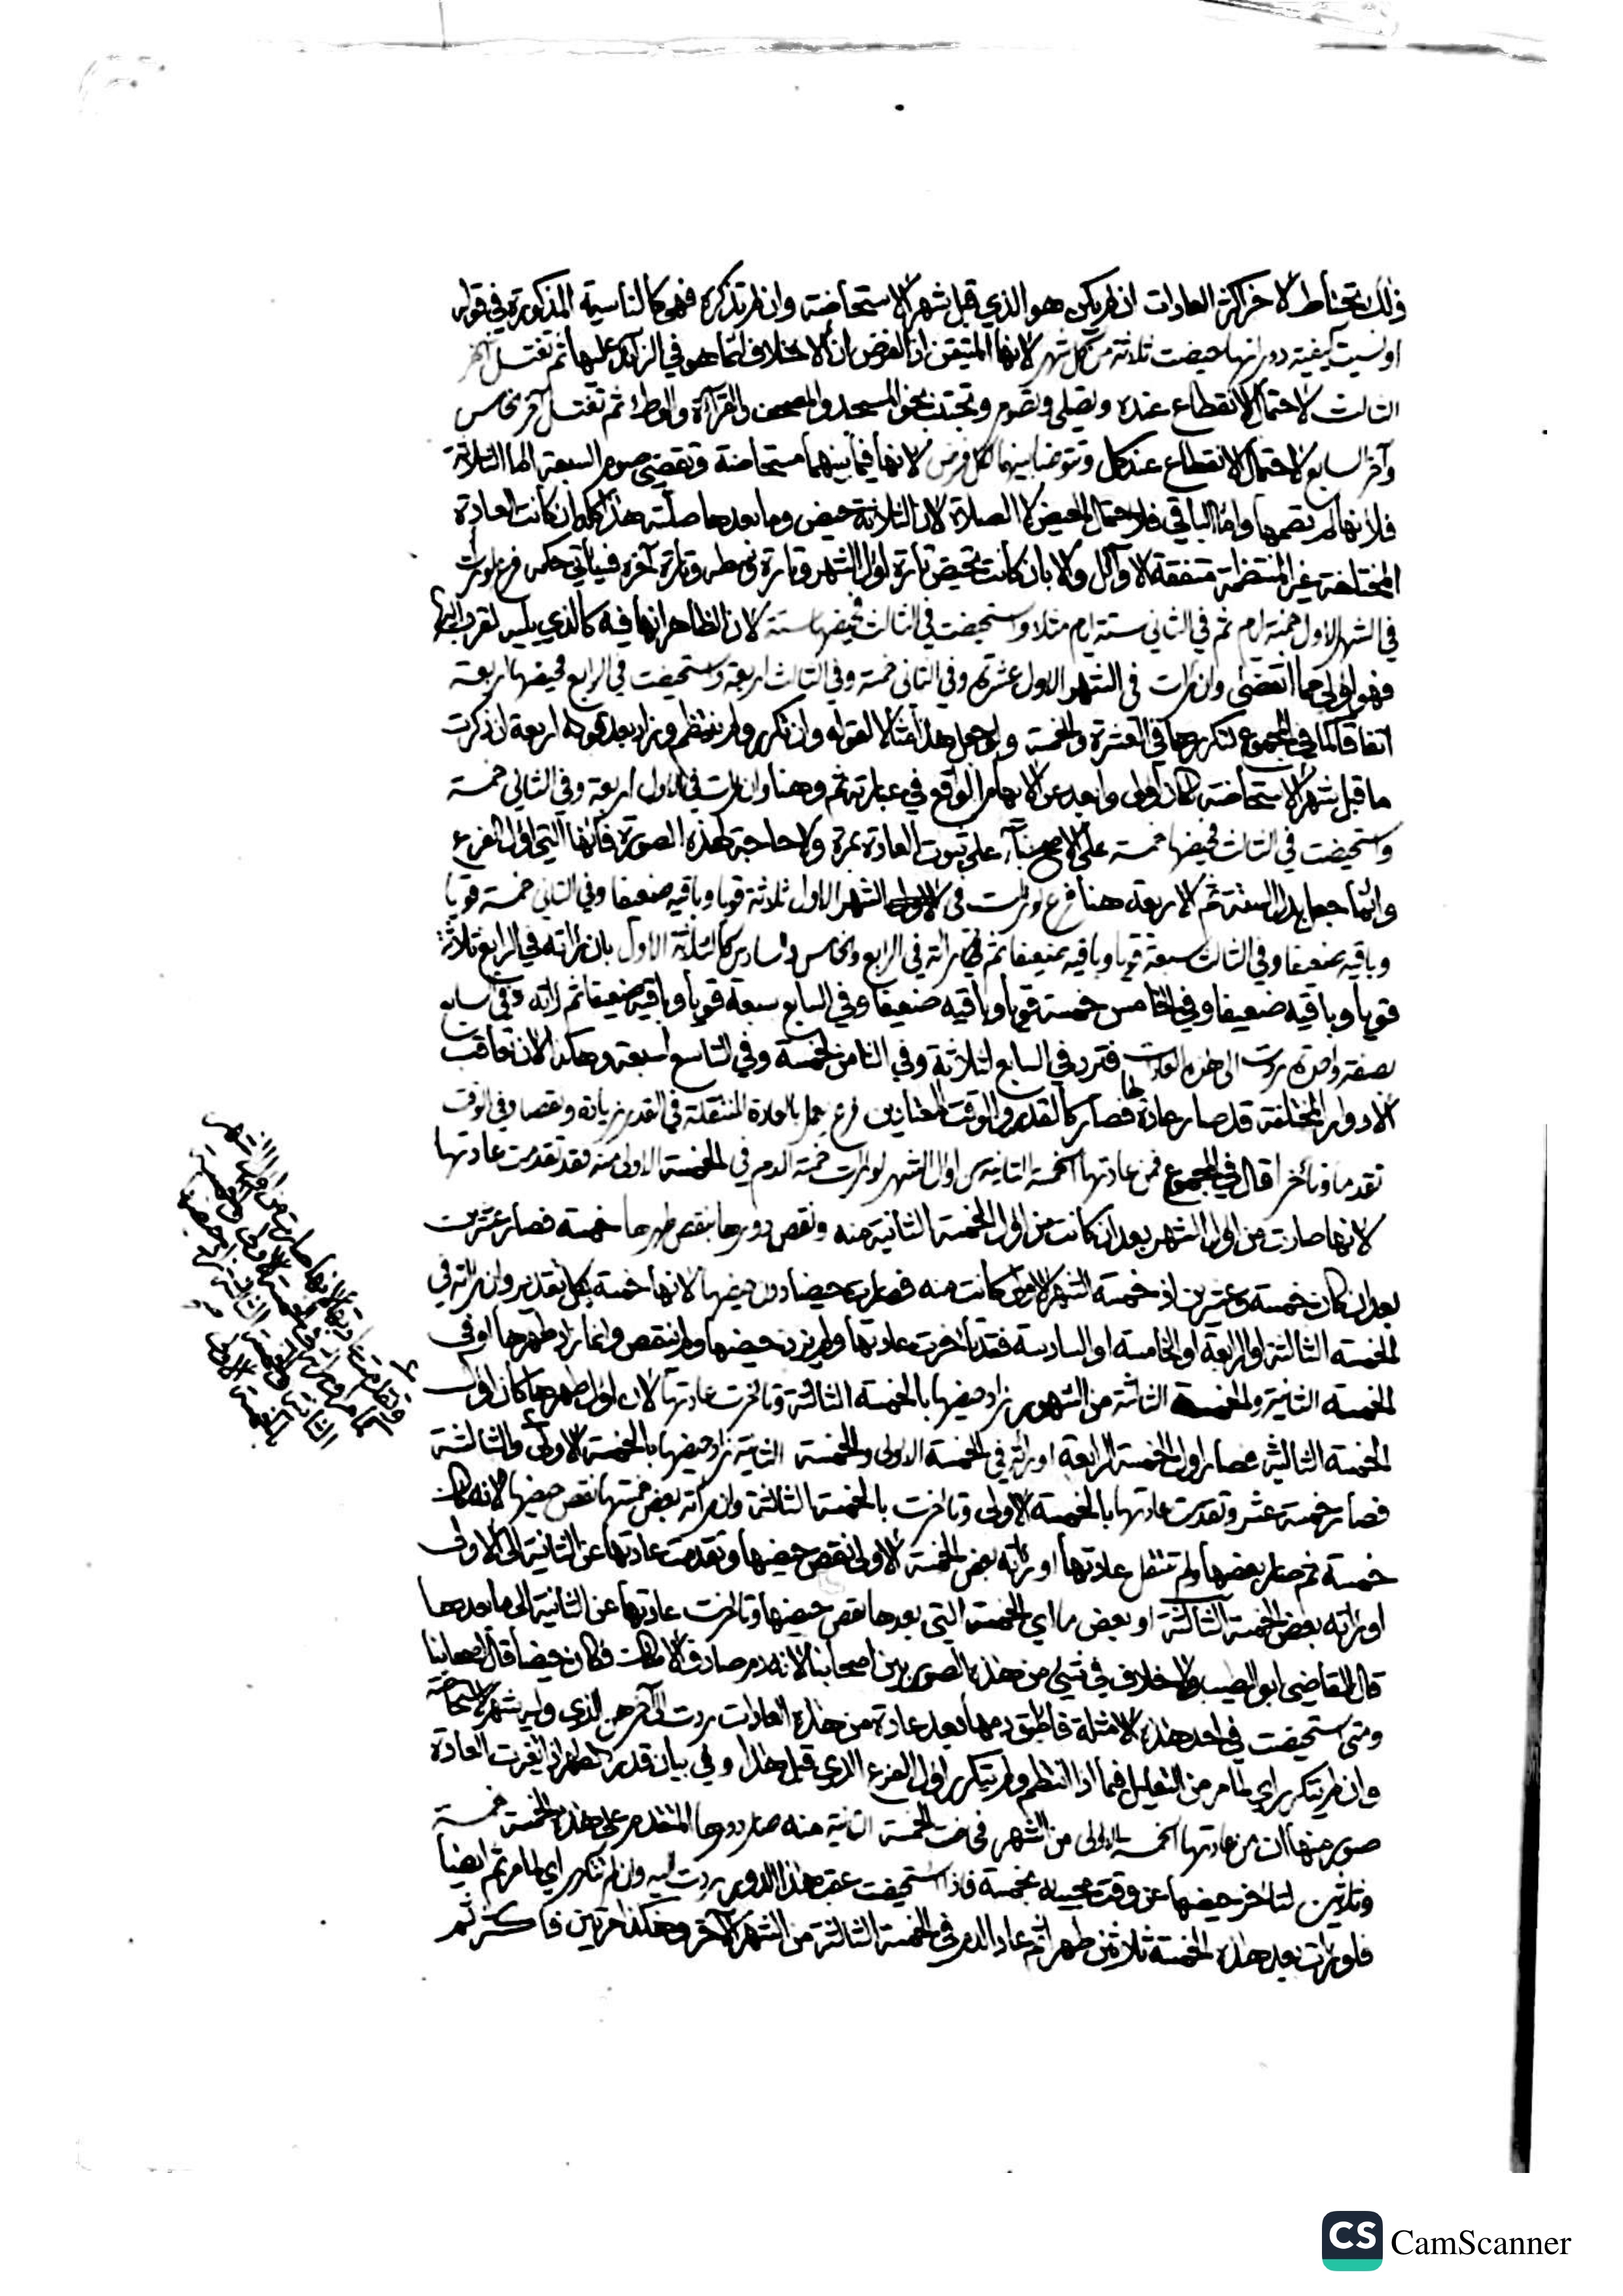 ذلك تحتاط لآخر أكثر العادات ان لم يكن هو الذي قبل شهر الاستحاضة وان لم تذكره فهو كالناسية المذكورة في قوله
او نسيت كيفية دورانها حيضت ثلاثة من كل شهر لانها المتيقن اذ الفرض ان الاختلاف انما هو في الزائد عليها ثم تغتسل آخر
الثالث لاحتمال الانقطاع عنده وتصلي وتصوم وتجتنب نحو المسجد والمصحف والقراءة والوطئ ثم تغتسل آخر الخامس
وآخر السابع لاحتمال الانقطاع عند كل وتتوضأ بينهما لكل فرض لانها فيما بينهما مستحاضة وتقضي صوم السبعة اما الثلاثة
فلأنها لم تصمها واما الباقي فلاحتمال الحيض لا الصلاة لان الثلاثة حيض وما بعدها صلته هذا كله ان كانت العادة
المختلفة غير المنتظمة متفقة الاوائل والا بان كانت تحيض تارة اول الشهر وتارة وسطه وتارة آخره فسيأتي حكمه فرع لو رأت
في الشهر الاول خمسة ايام ثم في الثاني ستة ايام مثلا واستحيضت في الثالث فحيضها ستة لان الظاهر انها فيه كالذي يليه لقربه اليها
فهو اولى مما انقضى وان رأت في الشهر الاول عشرة وفي الثاني خمسة وفي الثالث اربعة واستحيضت في الرابع فحيضها اربعة
اتفاقا كما في المجموع لتكررها في العشرة والخمسة ولو جعل هذا مثالا لقوله وان تكرر ولم ينتظم وزاد بعد قوله اربعة ان ذكرت
ما قبل شهر الاستحاضة كان اولى وابعد عن الابهام الواقع في عبارته ثم وهنا وان رأت في الاول اربعة وفي الثاني خمسة
واستحيضت في الثالث فحيضها خمسة على الاصح بناء على ثبوت العادة بمرة ولا حاجة لهذه الصورة فانها التي اول الفرع
وانما جعل بدل الستة ثم الاربعة هنا فرع لو رأت في الشهر الاول ثلاثة قويا وباقيه ضعيفا وفي الثاني خمسة قويا
وباقيه ضعيفا وفي الثالث سبعة قويا وباقيه ضعيفا ثم رأته في الرابع والخامس والسادس كالثلاثة الاول بان رأته في الرابع ثلاثة
قويا وباقيه ضعيفا وفي الخامس خمسة قويا وباقيه ضعيفا وفي السابع سبعة قويا وباقيه ضعيفا ثم رأته في السابع
بصفة واحدة ردت الى هذه العادات فترد في السابع لثلاثة وفي الثامن لخمسة وفي التاسع لسبعة وهكذا لان تعاقب
الادوار المختلفة قد صار عادة لها فصار كالقدر والوقت المعتادين فرع يعمل بالعادة المنتقلة في القدر زيادة ونقصا وفي الوقت
تقدما وتأخرا قال في المجموع فمن عادتها الخمسة الثانية من اول الشهر لو رأت خمسة الدم في الخمسة الاولى منه فقد تقدمت عادتها
لانها صارت من اول الشهر بعد ان كانت من اول الخمسة الثانية منه ونقص دورها بنقص طهرها خمسة فصار عشرين
بعد ان كان خمسة وعشرين اذ خمسة الشهر الاولى كانت منه فصارت حيضا دون حيضها لانها خمسة بكل تقدير وان رأته في
الخمسة الثالثة او الرابعة او الخامسة او السادسة فقد تأخرت عادتها ولم يزد حيضها ولم ينقص وانما زاد طهرها او في
الخمسة الثانية والخمسة الثالثة من الشهور زاد حيضها بالخمسة الثالثة وتأخرت عادتها لان اول طهرها كان اول
الخمسة الثالثة فصار اول الخمسة الرابعة او رأته في الخمسة الاولى والخمسة الثانية زاد حيضها بالخمسة الاولى والثالثة
فصار خمسة عشر وتقدمت عادتها بالخمسة الاولى وتأخرت بالخمسة الثالثة وان رأته بعض خمستها نقص حيضها لانه كان
خمسة ثم صار بعضها ولم تنتقل عادتها او رأته بعض الخمسة الاولى نقص حيضها وتقدمت عادتها عن الثانية الى الاولى
او رأته بعض الخمسة الثالثة او بعض ما اي الخمسة التي بعدها نقص حيضها وتأخرت عادتها عن الثانية الى ما بعدها
قال القاضي ابو الطيب ولا خلاف في شيء من هذه الصور بين اصحابنا لانه دم صادف الامكان فكان حيضا قال اصحابنا
ومتى استحيضت في احد هذه الامثلة فاطبق دمها بعد عادة من هذه العادات ردت الى آخرهن الذي وليه شهر الاستحاضة
وان لم يتكرر اي لما مر من التعليل فيما اذا انتظم ولم يتكرر اول الفرع الذي قبل هذا وفي بيان قدر الطهر اذا تغيرت العادة
صور منها ان من عادتها الخمسة الاولى من الشهر في الخمسة الثانية منه صار دورها المتقدم على هذه الخمسة خمسة
وثلاثين لتأخر حيضها عن وقت مجيئه بخمسة فاذا استحيضت عقب هذا الدور ردت اليه وان لم يتكرر اي لما مر ثم ايضا
فلو رأت بعد هذه الخمسة ثلاثين طهرا ثم عاد الدم في الخمسة الثالثة من الشهر الآخر وهكذا مرتين فاكثر ثم